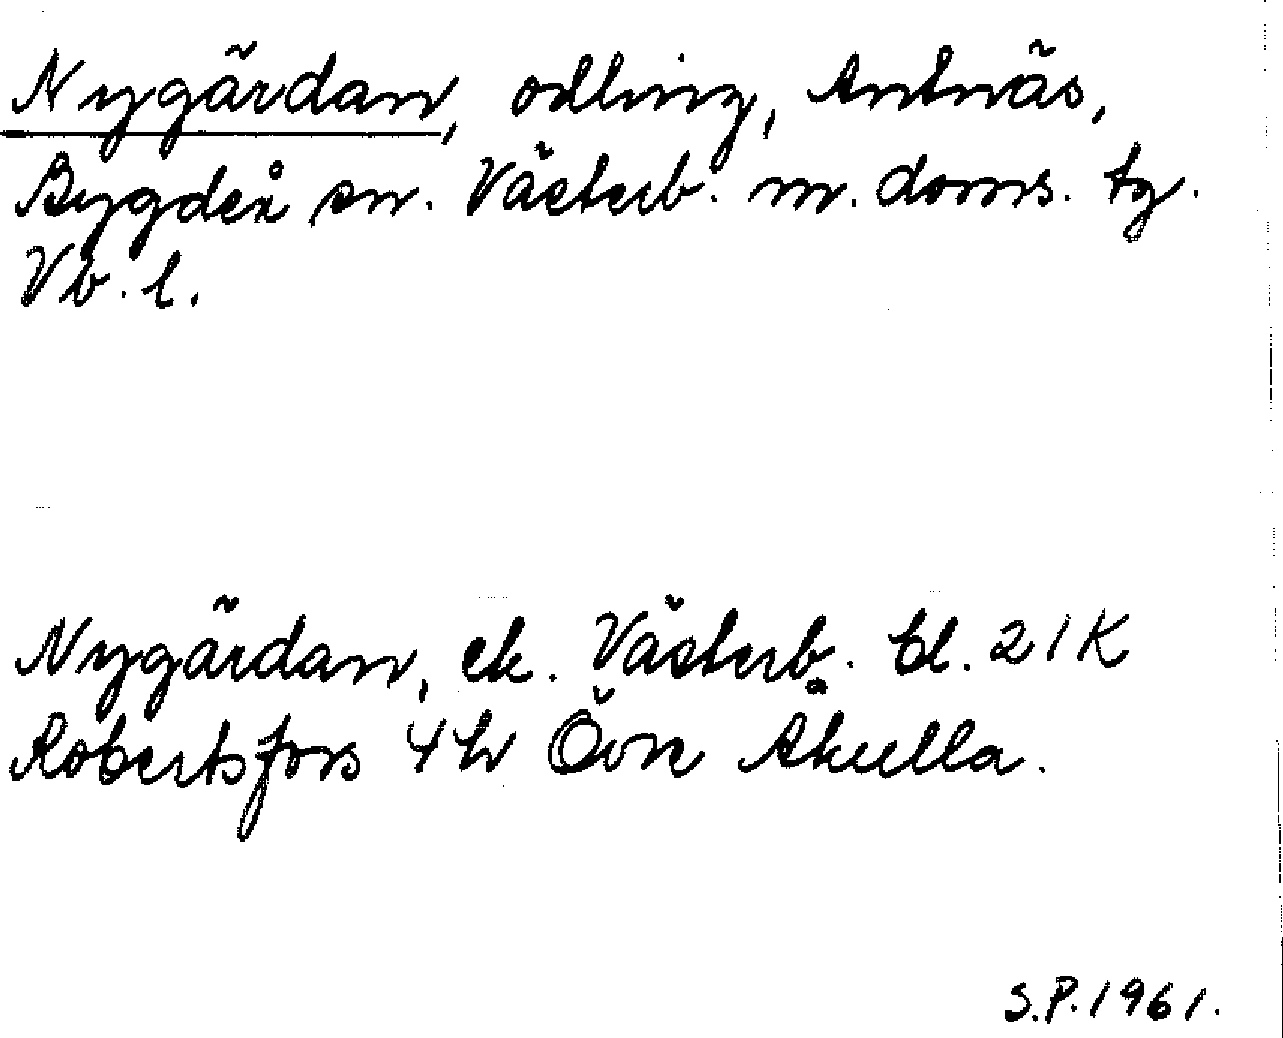 Nygärdan, odling, Antnäs,
Bygdeå sn. Västerb. m. doms. tg.
Vb. l.
Nygärdan, ek. Västerb. bl. 21K
Robertsfors 4h Övre Åkulla.
S.P. 1961.